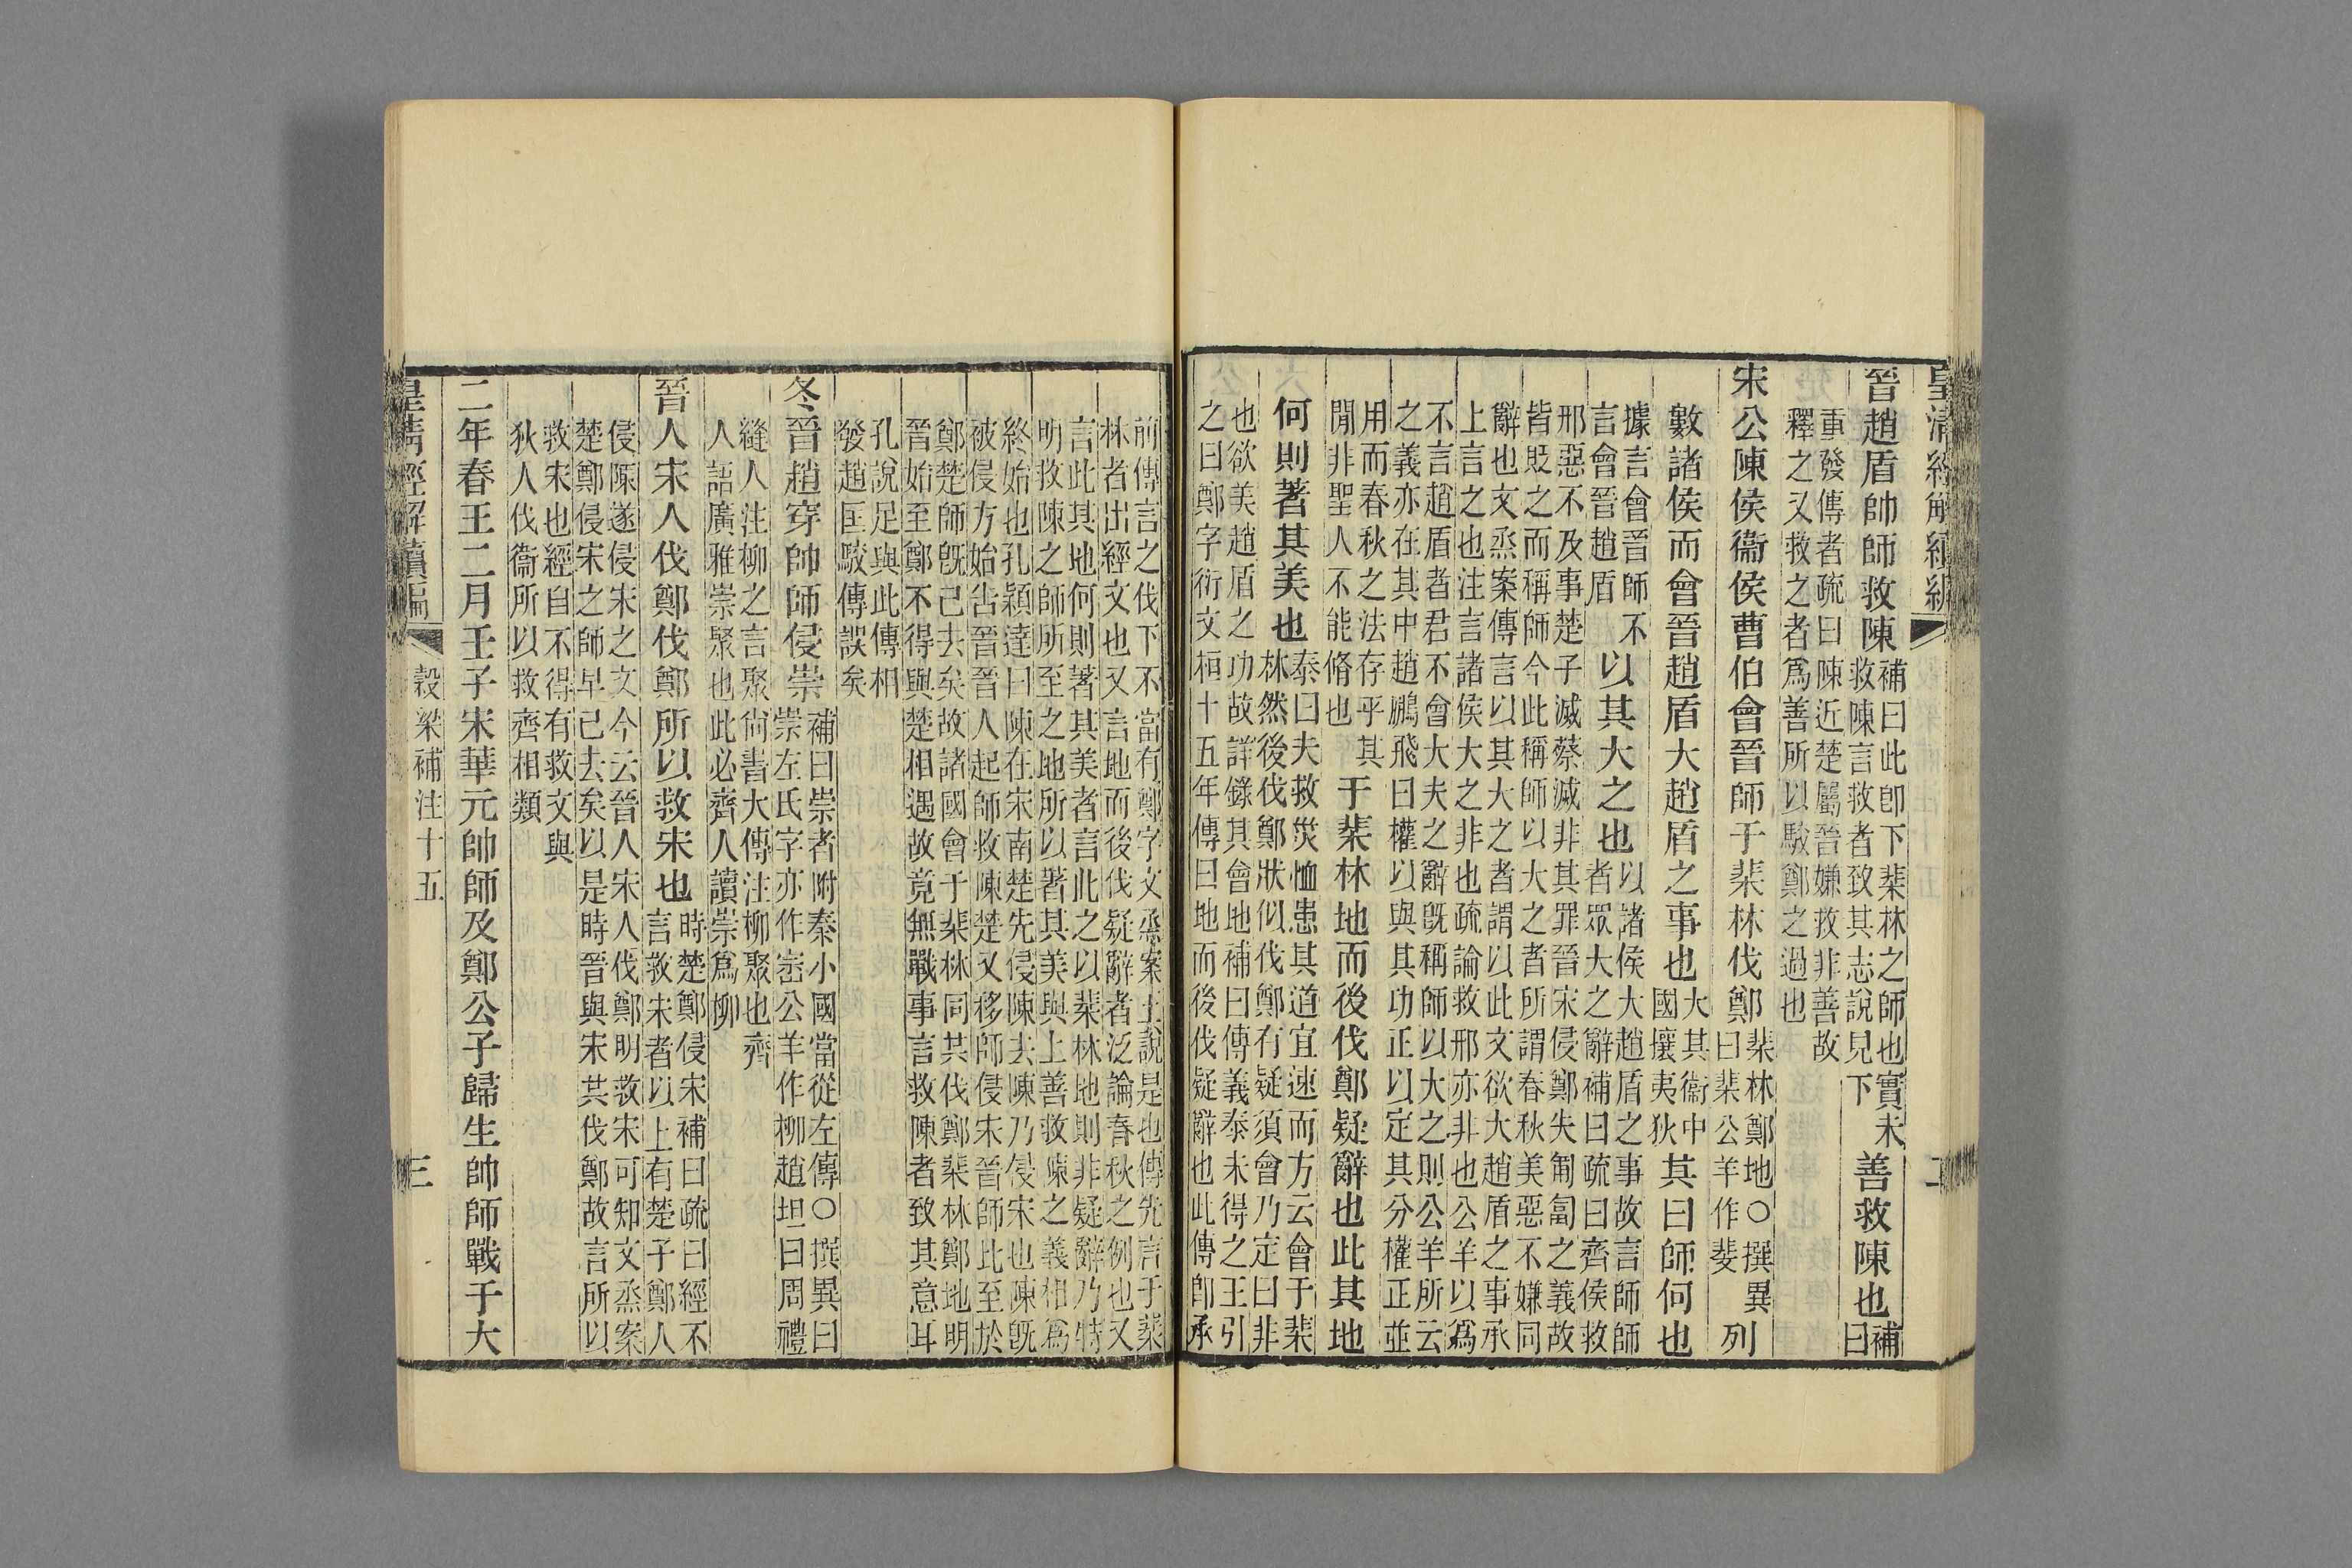 皇清經解續編
二
晉趙盾帥師救陳補曰此卽下棐林之師也實未
救陳言救者致其志說見下善救陳也補曰
重發傳者疏曰陳近楚屬晉嫌救非善故
釋之又救之者爲善所以駮鄭之過也
宋公陳侯衞侯曹伯會晉師于棐林伐鄭棐林鄭地○撰異
曰棐公羊作斐列
數諸侯而會晉趙盾大趙盾之事也大其衞中
國攘夷狄其曰師何也
據言會晉師不
言會晉趙盾以其大之也以諸侯大趙盾之事故言師師
者眾大之辭補曰疏曰齊侯救
邢惡不及事楚子滅蔡滅非其罪晉宋侵鄭失匍匐之義故
皆貶之而稱師今此稱師以大之者所謂春秋美惡不嫌同
辭也文烝案傳言以其大之者謂以此文欲大趙盾之事承
上言之也注言諸侯大之非也疏論救邢亦非也公羊以爲
不言趙盾者君不會大夫之辭旣稱師以大之則公羊所云
之義亦在其中趙鵬飛曰權以與其功正以定其分權正並
用而春秋之法存乎其
閒非聖人不能脩也于棐林地而後伐鄭疑辭也此其地
何則著其美也泰曰夫救災恤患其道宜速而方云會于棐
林然後伐鄭狀似伐鄭有疑須會乃定曰非
也欲美趙盾之功故詳錄其會地補曰傳義泰未得之王引
之曰鄭字衍文桓十五年傳曰地而後伐疑辭也此傳卽承
前傳言之伐下不當有鄭字文烝案王說是也傳先言于棐
林者出經文也又言地而後伐疑辭者泛論春秋之例也又
言此其地何則著其美者言此之以棐林地則非疑辭乃特
明救陳之師所至之地所以著其美與上善救陳之義相爲
終始也孔穎達曰陳在宋南楚先侵陳去陳乃侵宋也陳旣
被侵方始告晉晉人起師救陳楚又移師侵宋晉師此至於
鄭楚師旣已去矣故諸國會于棐林同共伐鄭棐林鄭地明
晉始至鄭不得與楚相遇故竟無戰事言救陳者致其意耳
孔說足與此傳相
發趙匡駮傳誤矣
冬晉趙穿帥師侵崇補曰崇者附秦小國當從左傳○撰異曰
崇左氏字亦作崈公羊作柳趙坦曰周禮
縫人注柳之言聚尙書大傳注柳聚也齊
人語廣雅崇聚也此必齊人讀崇爲柳
晉人宋人伐鄭伐鄭所以救宋也時楚鄭侵宋補曰疏曰經不
言救宋者以上有楚子鄭人
侵陳遂侵宋之文今云晉人宋人伐鄭明救宋可知文烝案
楚鄭侵宋之師早已去矣以是時晉與宋共伐鄭故言所以
救宋也經自不得有救文與
狄人伐衞所以救齊相類
二年春王二月壬子宋華元帥師及鄭公子歸生帥師戰于大
皇清經解續編
穀梁補注十五
三